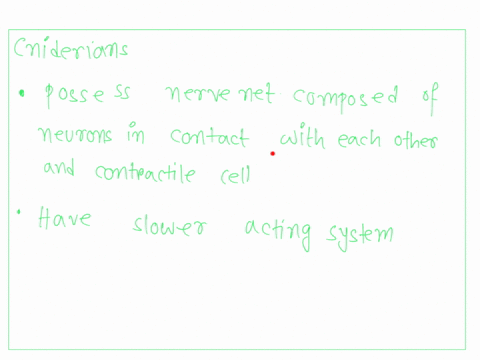 Cniderians
• possess nerve net composed of
neurons in contact with each other
and contractile cell
• Have slower acting system